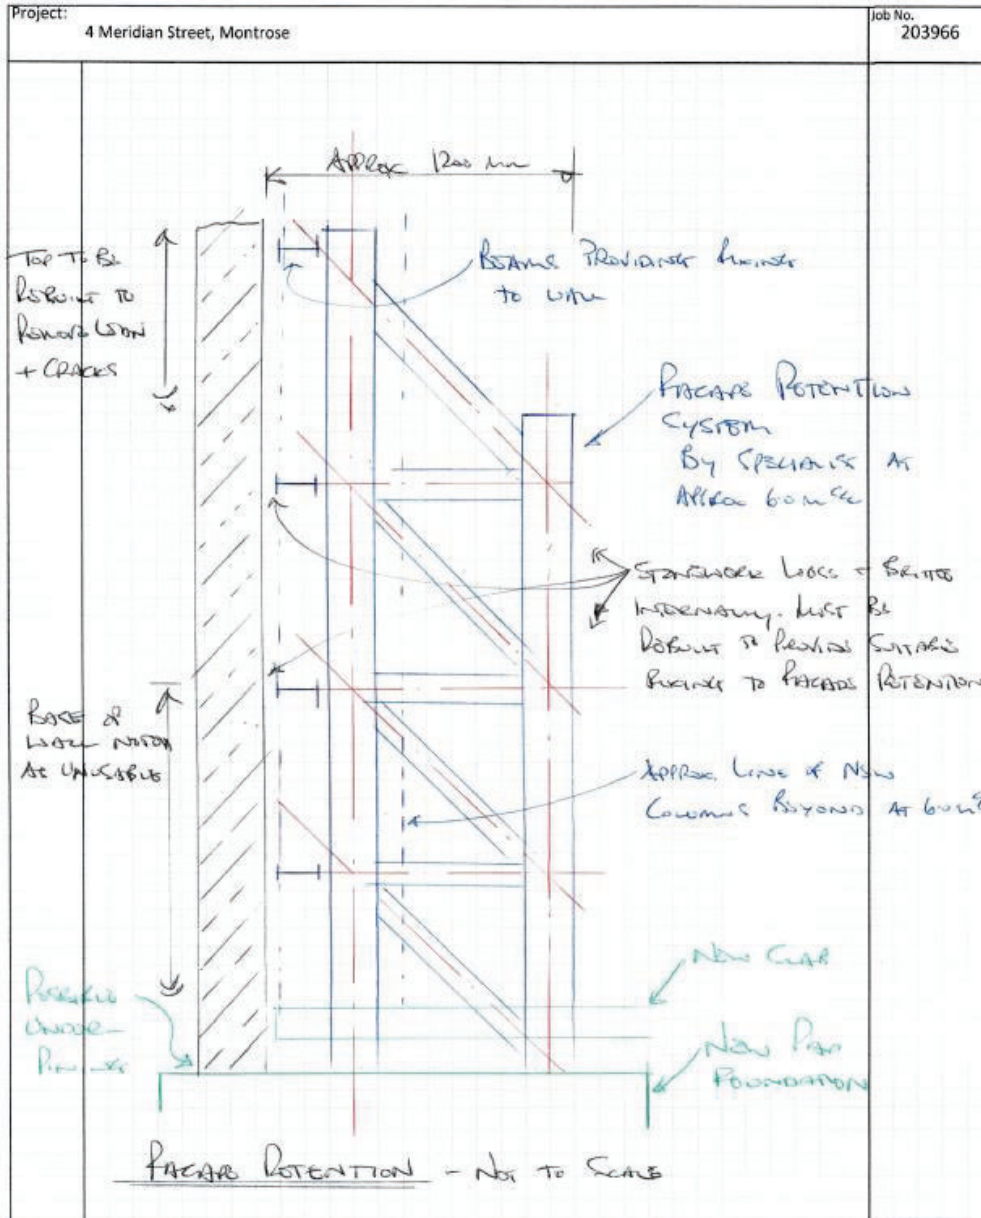 Project:
4 Meridian Street, Montrose
Job No.
203966
APPROX 1200 mm
TOP TO BE
REBUILT TO
REMOVE LEAN
+ CRACKS
BEAMS PROVIDING FIXINGS
TO WALL
FACADE RETENTION
SYSTEM
BY SPECIALIST AT
APPROX 6.0m c/c
STONEWORK LOOSE + BRITTLE
INTERNALLY. MUST BE
REBUILT TO PROVIDE SUITABLE
FIXING TO FACADE RETENTION
BASE OF
WALL NOTED
AS UNUSABLE
APPROX LINE OF NEW
COLUMNS BEYOND AT 6.0m
POSSIBLE
UNDER-
PINNING
NEW SLAB
NEW PAD
FOUNDATION
FACADE RETENTION - NOT TO SCALE